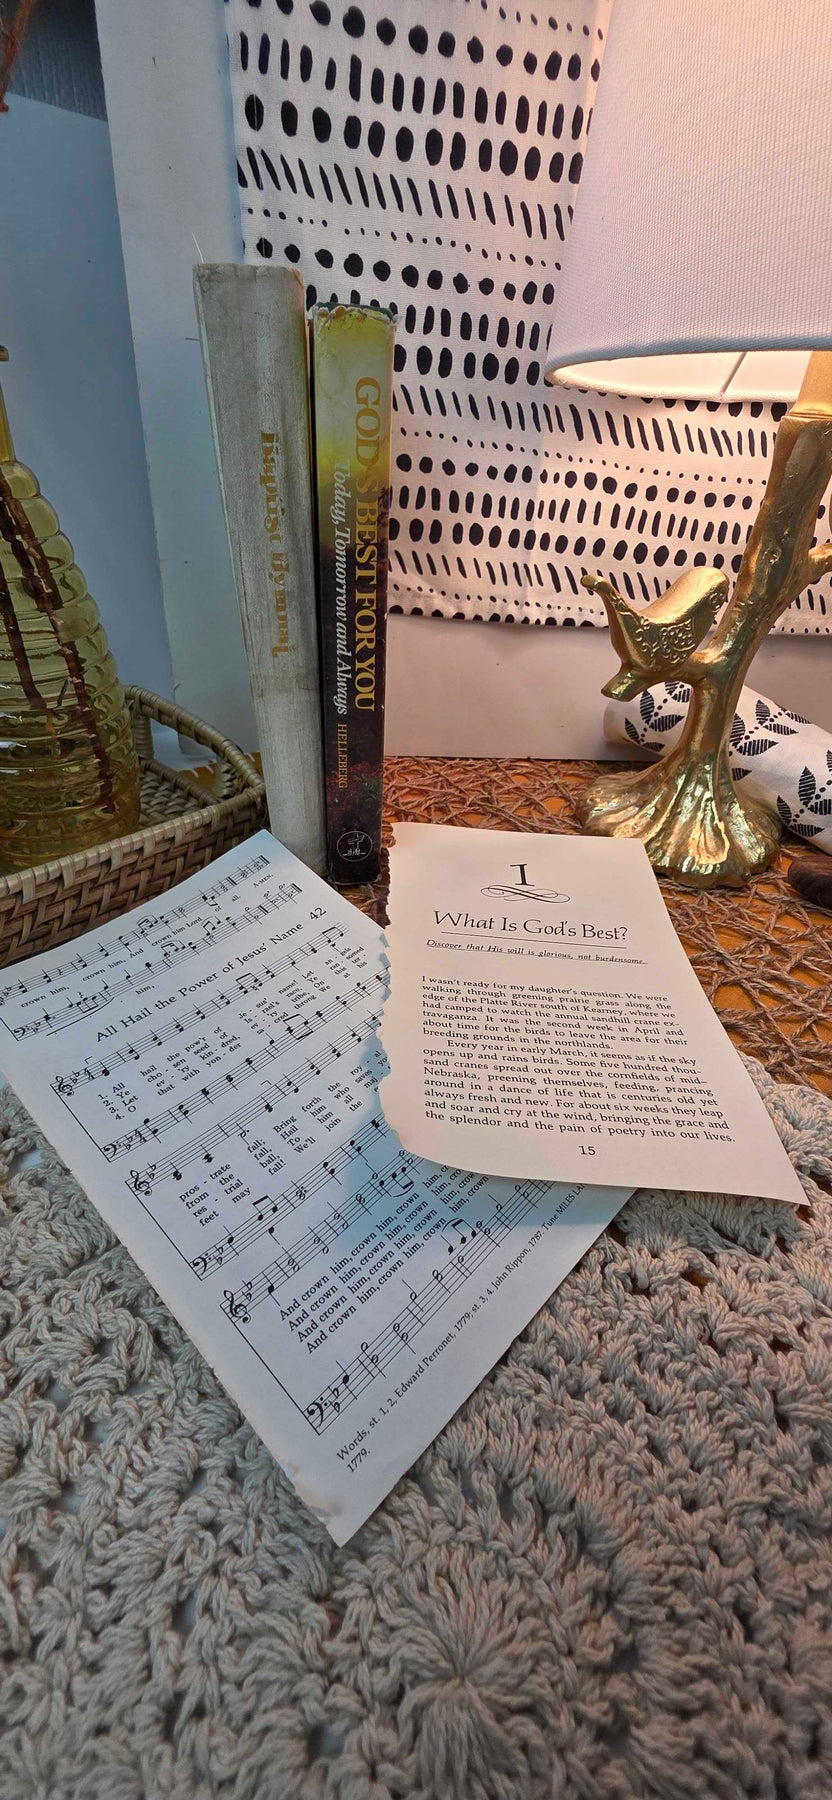 Baptist Hymnal
GOD'S BEST FOR YOU
Today, Tomorrow and Always
HELLEBERG
crown him, crown him, And crown him Lord of all. A-MEN.
crown him,
him,
All Hail the Power of Jesus' Name 42
1. All hail the pow'r of Je - sus' name! Let an - gels
2. Ye cho - sen seed of Is - rael's race, Ye ran - somed
3. Let ev - 'ry kin - dred, ev - 'ry tribe, On this ter
4. O that with yon - der sa - cred throng We at his
pros - trate fall; Bring forth the roy - al
from the fall, Hail him who saves you
res - trial ball, To him all maj
feet may fall! We'll join the
And crown him, crown him, crown him,
And crown him, crown him, crown him,
And crown him, crown him, crown him,
And crown him, crown him, crown him,
Words, st. 1, 2, Edward Perronet, 1779; st. 3, 4, John Rippon, 1787, Tune MILES LA
1779.
1
What Is God's Best?
Discover that His will is glorious, not burdensome.
I wasn't ready for my daughter's question. We were
walking through greening prairie grass along the
edge of the Platte River south of Kearney, where we
had camped to watch the annual sandhill crane ex-
travaganza. It was the second week in April and
about time for the birds to leave the area for their
breeding grounds in the northlands.
Every year in early March, it seems as if the sky
opens up and rains birds. Some five hundred thou-
sand cranes spread out over the cornfields of mid-
Nebraska, preening themselves, feeding, prancing
around in a dance of life that is centuries old yet
always fresh and new. For about six weeks they leap
and soar and cry at the wind, bringing the grace and
the splendor and the pain of poetry into our lives.
15